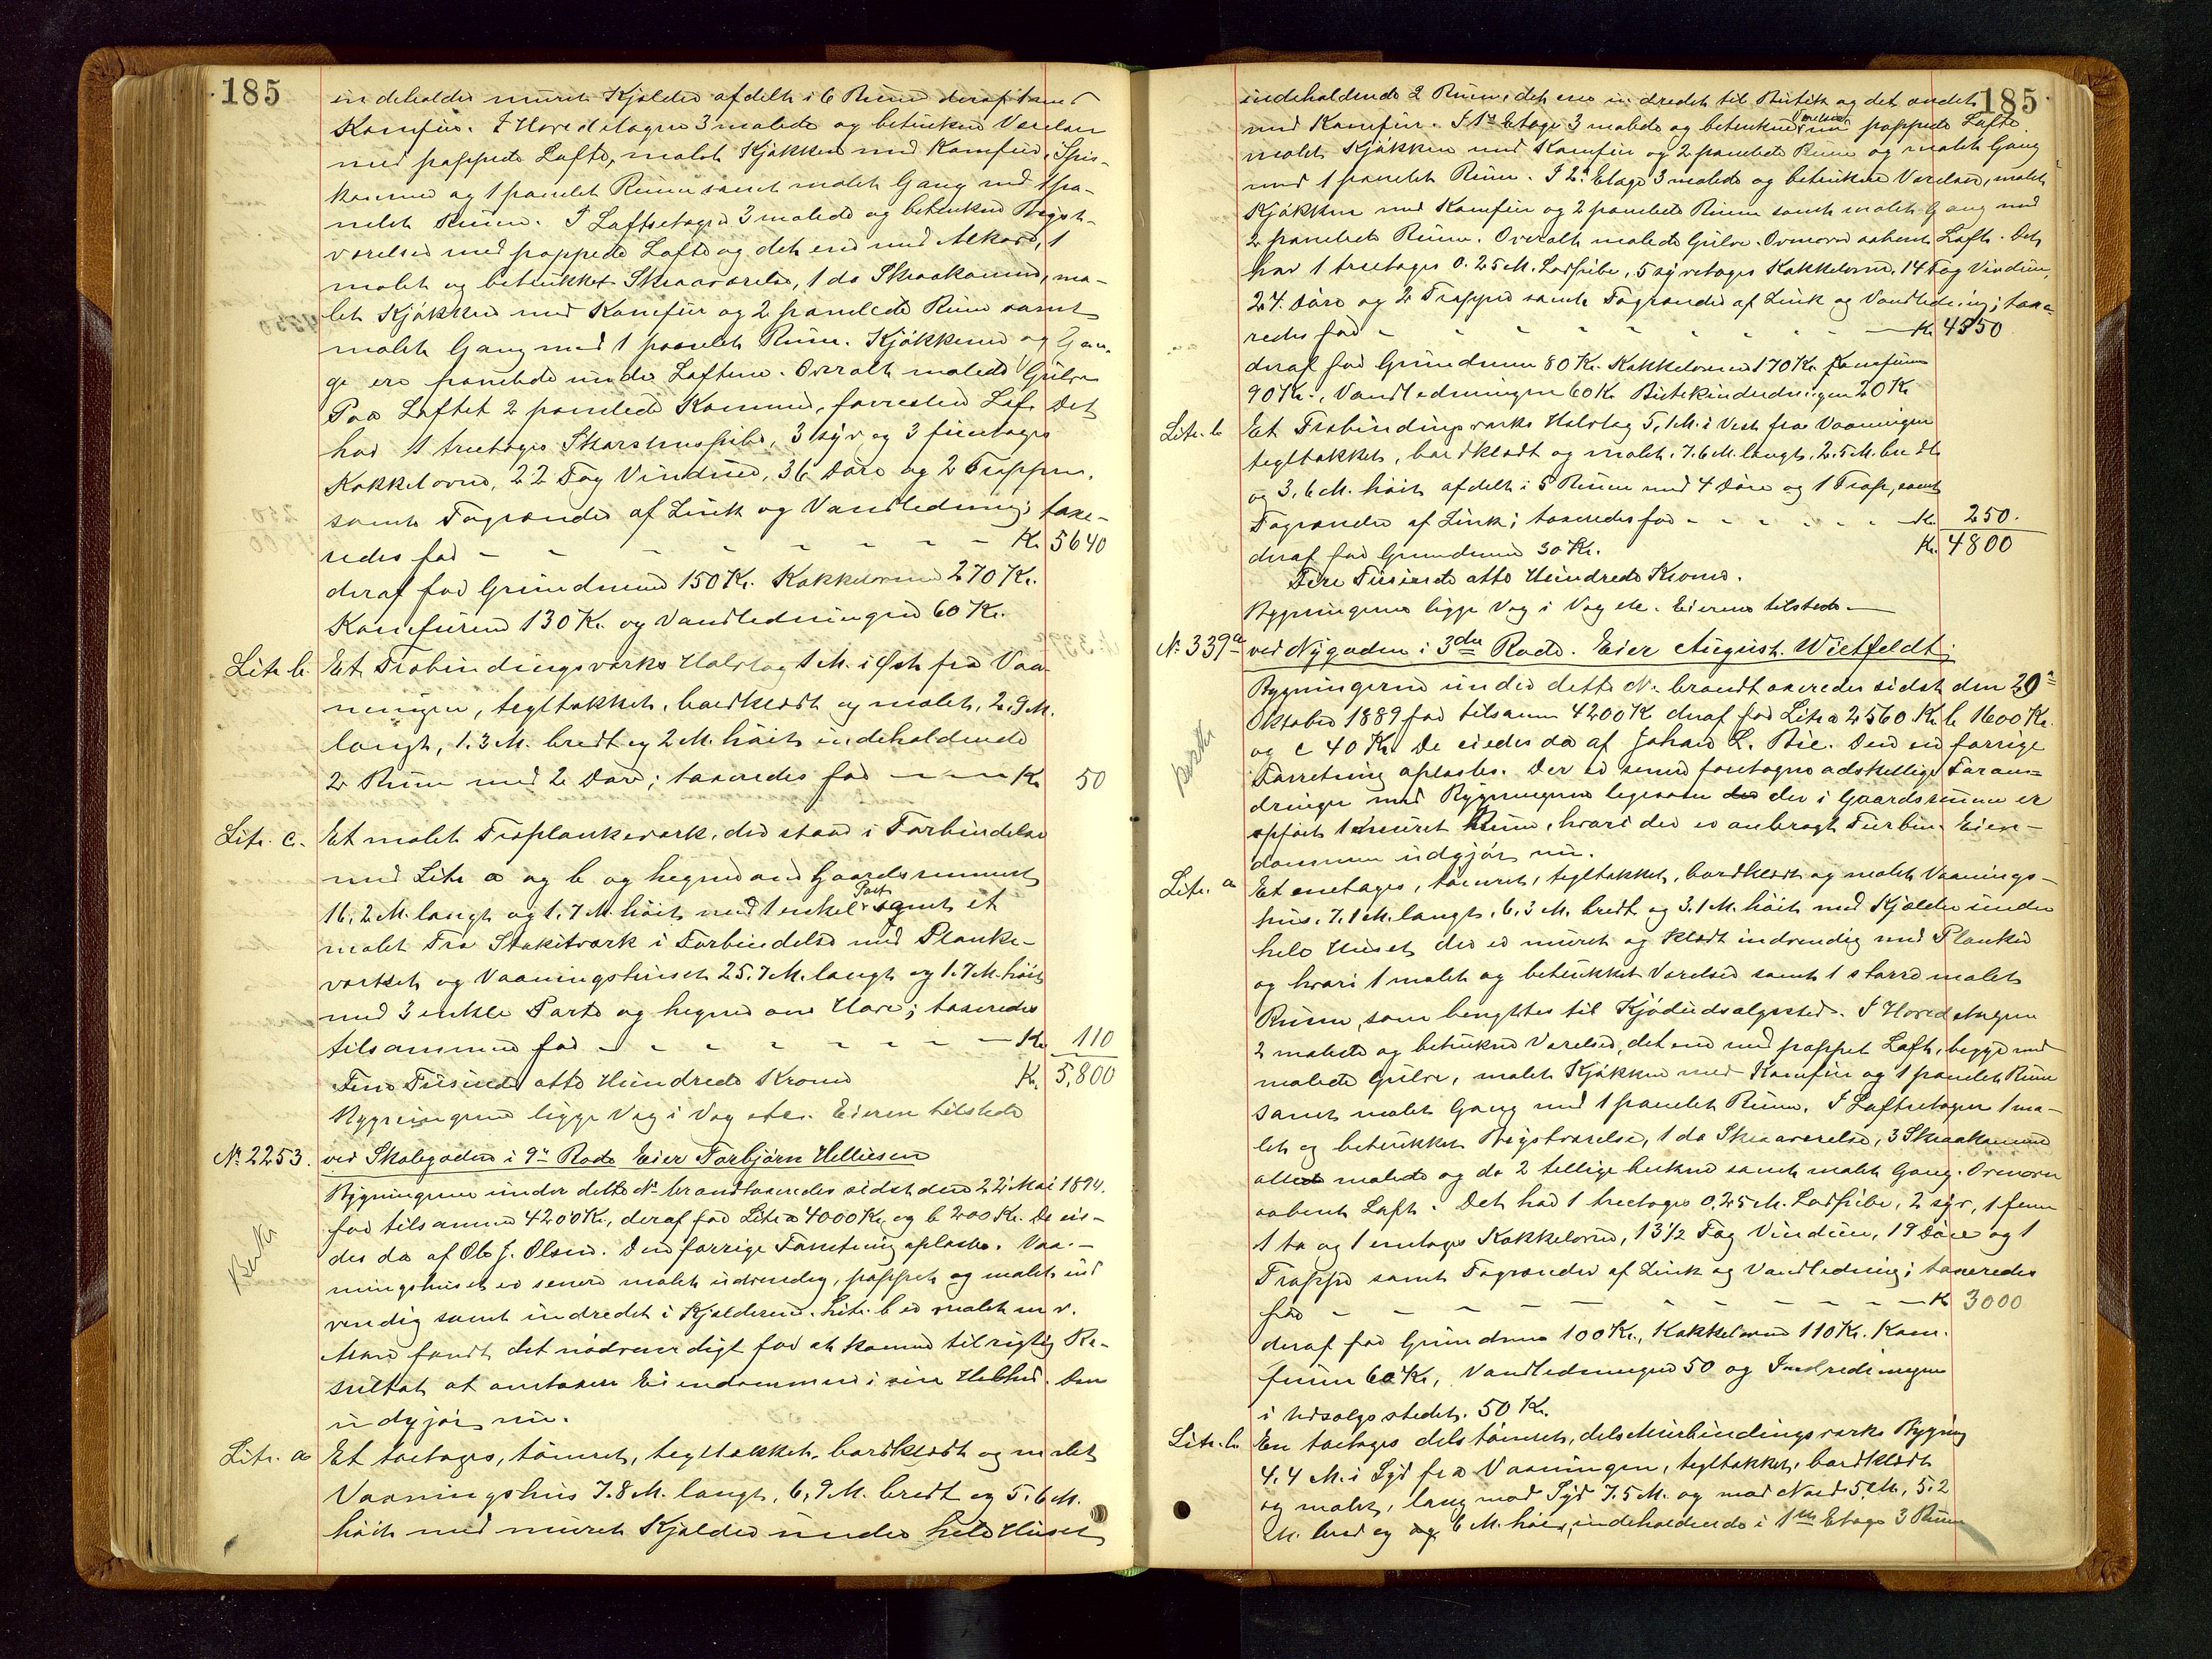 185
indeholder muret Kjælder afdelt i 6 Rum deraf 1 med
Komfur. I Hovedetagen 3 malede og betrukne Værelser
med pappede Lofte, malet Kjøkken med Komfur, Spis-
kammer og 1 panelet Rum samt malet Gang med 1 pa-
nelet Rum. I Loftsetagen 3 malede og betrukne Kvist-
værelser med pappede Lofte og det ene med Alkove, 1
malet og betrukket Skraaværelse, 1 do Skraakammer, ma-
let Kjøkken med Komfur og 2 panelede Rum samt
malet Gang med 1 panelet Rum. Kjøkkenet og Gan-
ge ere panelede under Loftene. Overalt malede Gulve
Paa Loftet 2 panelede Kammer, forresten Loft. Det
har 1 treetages Skorstenspibe, 3 syv og 3 fireetages
Kakkelovne, 22 Fag Vinduer, 36 Døre og 2 Trapper,
samt Tagrender af Zink og Vandledning; taxe-
redes for - - - - - - - Kr. 5640
deraf for Grundmur 150 Kr. Kakkelovne 270 Kr.
Komfurene 130 Kr. og Vandledningen 60 Kr.
Litr. b. Et Træbindingsværks Halvtag 1 M. i Øst fra Vaa-
ningen, tegltækket, bordklædt og malet, 2.9 M.
langt, 1.3 M. bredt og 2 M. høit indeholdende
2 Rum med 2 Døre; taxeredes for - - - Kr. 50
Litr. c. Et malet Træplankeværk, der staar i Forbindelse
med Litr a og b og hegner om Gaardsrummet
16.2 M. langt og 1.7 M. høit med 1 enkel Port samt et
malet Træ Stakitværk i Forbindelse med Planke-
værket og Vaaningshuset 25.7 M. langt og 1.7 M. høit
med 3 enkle Porte og hegner om Have; taxeredes
tilsammen for - - - - - - - Kr. 110
Fem Tusinde otte Hundrede Kroner Kr. 5,800
Bygningerne ligge Væg i Væg etc. Eieren tilstede
No 2253. ved Skolegaden i 9de Rode Eier Torbjørn Helliesen
Bygningerne under dette No brandtaxeredes sidst den 22 Mai 1894.
for tilsammen 4200 Kr., deraf for Litr a 4000 Kr. og b 200 Kr. De eie-
des da af Ole J. Olsen. Den forrige Forretning oplæstes. Vaa-
ningshuset er senere malet udvendig, pappet og malet ind
vendig samt indredet i Kjælderen. Litr. b er malet m. v.
Man fandt det nødvendigt for at komme til rigtig Re-
sultat at omtaxere Eiendommen i sin Helhed. Den
udgjør nu.
Litr. a Et toetages, tømret, tegltækket, bordklædt og malet
Vaaningshus 7.8 M. langt, 6,9 M. bredt og 5,6 M.
høit med muret Kjælder under hele Huset
185
indeholdende 2 Rum, det ene indredet til Butik og det andet
med Komfur. I 1ste Etage 3 malede og betrukne Værelser med pappede Lofte
malet Kjøkken med Komfur og 2 panelede Rum og malet Gang
med 1 panelet Rum. I 2d Etage 3 malede og betrukne Værelser, malet
Kjøkken med Komfur og 2 panelede Rum samt malet Gang med
2 panelede Rum. Overalt malede Gulve. Ovenover aabent Loft. Det
har 1 treetages 0.25 M. Lodpibe, 5 syvetages Kakkelovne, 14 Fag Vinduer,
24 Døre og 2 Trapper samt Tagrender af Zink og Vandledning; taxe-
redes for - - - - - - - Kr. 4550
deraf for Grundmur 80 Kr. Kakkelovne 170 Kr. Komfurene
90 Kr., Vandledningen 60 Kr. Butikindredningen 20 Kr
Litr. b Et Træbindingsværks Halvtag 5,1 M. i Vest fra Vaaningen
tegltækket, bordklædt og malet, 7.6 M. langt, 2.5 M. bredt
og 3,6 M. høit afdelt i 5 Rum med 4 Døre og 1 Trap, samt
Tagrender af Zink; taxeredes for - - - - - - Kr. 250.
deraf for Grundmur 30 Kr. Kr. 4800
Fire Tusinde otte Hundrede Kroner.
Bygningerne ligge Væg i Væg etc. Eieren tilstede
No 339a ved Nygaden i 3die Rode. Eier August. Wietfeldt;
Bygningerne under dette No brandtaxeredes sidst den 29
Oktober 1889 for tilsamm 4200 Kr deraf for Litr a 2560 Kr. b 1600 Kr.
og c 40 Kr. De eiedes da af Johan L. Bie. Den forrige
Forretning oplæstes. Der er senere foretagne adskellige Foran-
dringer med Bygningerne ligesom der i Gaardsrummet er
opført 1 muret Rum, hvori der er anbragt Turbin. Eien-
dommen udgjør nu.
Litr. a Et enetages, tømret, tegltækket, bordklædt og malet Vaanings-
hus, 7.1 M. langt, 6,3 M. bredt og 3.1 M. høit med Kjælder under
hele Huset der er muret og klædt indvendig med Planker
og hvori 1 malet og betrukket Værelse samt 1 større malet
Rum, som benyttes til Kjødudsalgssted. I Hovedetagen
2 malede og betrukne Værelser, det ene med pappet Loft, begge med
malede Gulve, malet Kjøkken med Komfur og 1 panelet Rum
samt malet Gang med 1 panelet Rum. I Loftsetagen 1 ma-
let og betrukket Kvistværelse, 1 do Skraaværelse, 3 Skraakammer
alle malede og de 2 tillige betrukne samt malet Gang. Ovenover
aabent Loft. Det har 1 treetages 0,25 M. Lodpibe, 2 syv, 1 fem
1 to og 1 enetages Kakkelovne, 13 1/2 Fag Vinduer, 19 Døre og 1
Trappe samt Tagrender af Zink og Vandledning; taxeredes
for - - - - - - - - - Kr. 3000
deraf for Grundmur 100 Kr., Kakkelovne 110 Kr. Kom-
furene 60 Kr., Vandledningen 50 og Indredningen
i Udsalgsstedet. 50 Kr.
Litr. b. En toetages dels tømret, dels Murbindingsværks Bygning
4,4 M. i Syd fra Vaaningen, tegltækket, bordklædt
og malet, lang mod Syd 7.5 M. og mod Nord 5. M., 5.2
M. bred og 6 M. høi, indeholdende i 1ste Etage 3 Rum